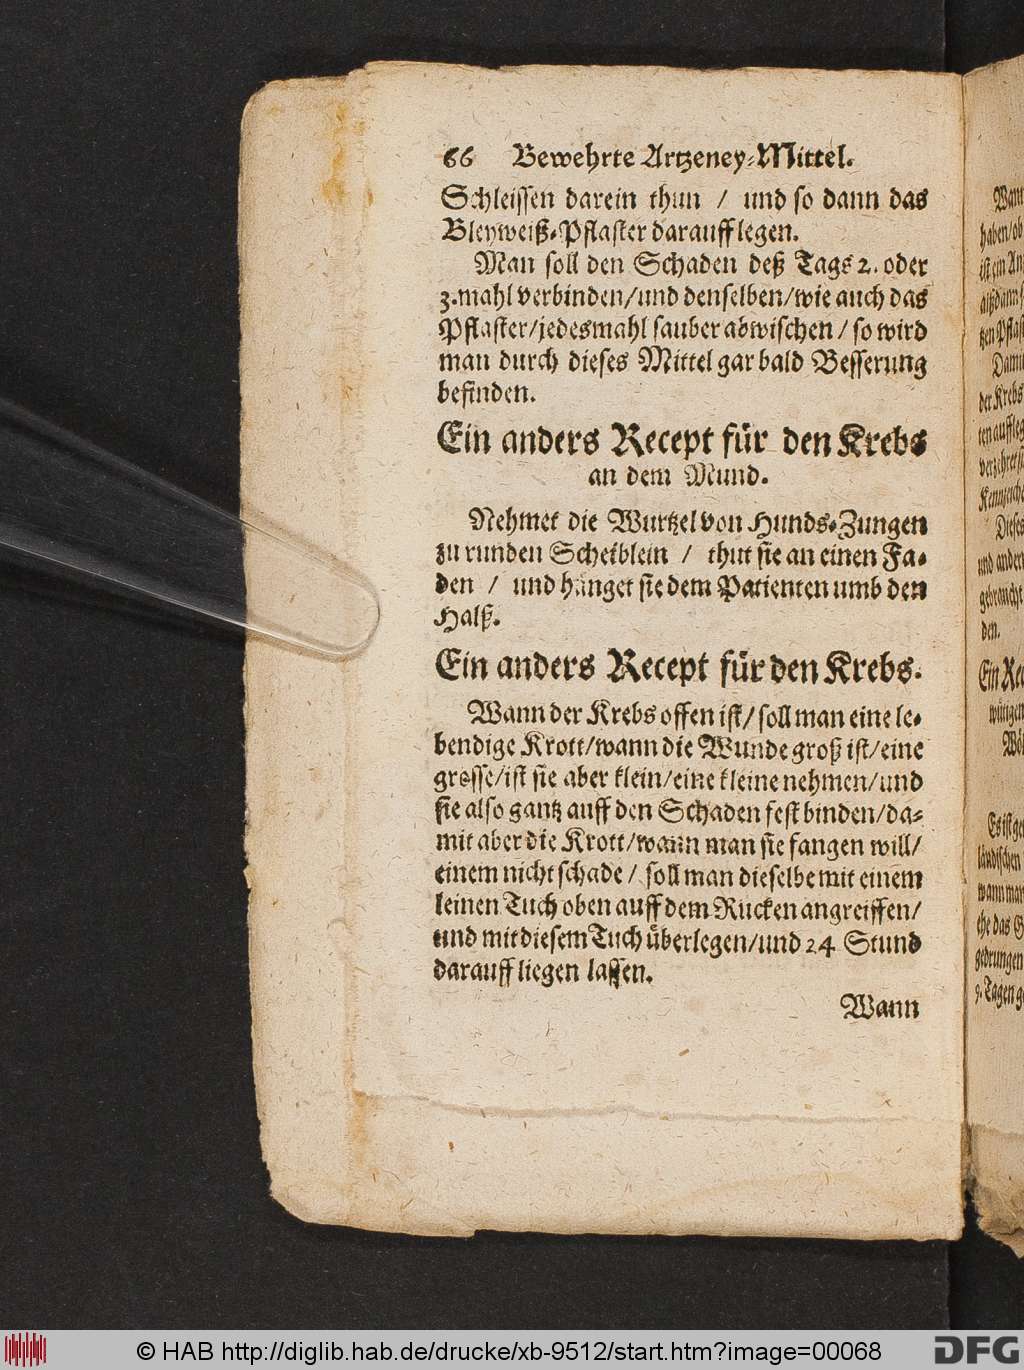 66 Bewehrte Artzeney-Mittel.
Schleissen darein thun / und so dann das
Bleyweiß-Pflaster darauff legen.
Man soll den Schaden deß Tags 2. oder
3. mahl verbinden/und denselben/wie auch das
Pflaster/jedesmahl sauber abwischen / so wird
man durch dieses Mittel gar bald Besserung
befinden.
Ein anders Recept für den Krebs
an dem Mund.
Nehmet die Wurtzel von Hunds-Zungen
zu runden Scheiblein / thut sie an einen Fa-
den / und hänget sie dem Patienten umb den
Halß.
Ein anders Recept für den Krebs.
Wann der Krebs offen ist/soll man eine le-
bendige Krott/wann die Wunde groß ist/eine
grosse/ist sie aber klein/eine kleine nehmen/und
sie also gantz auff den Schaden fest binden/da-
mit aber die Krott/wann man sie fangen will/
einem nicht schade / soll man dieselbe mit einem
leinen Tuch oben auff dem Rucken angreiffen/
und mit diesem Tuch überlegen/und 24 Stund
darauff liegen lassen.
Wann
© HAB http://diglib.hab.de/drucke/xb-9512/start.htm?image=00068
DFG